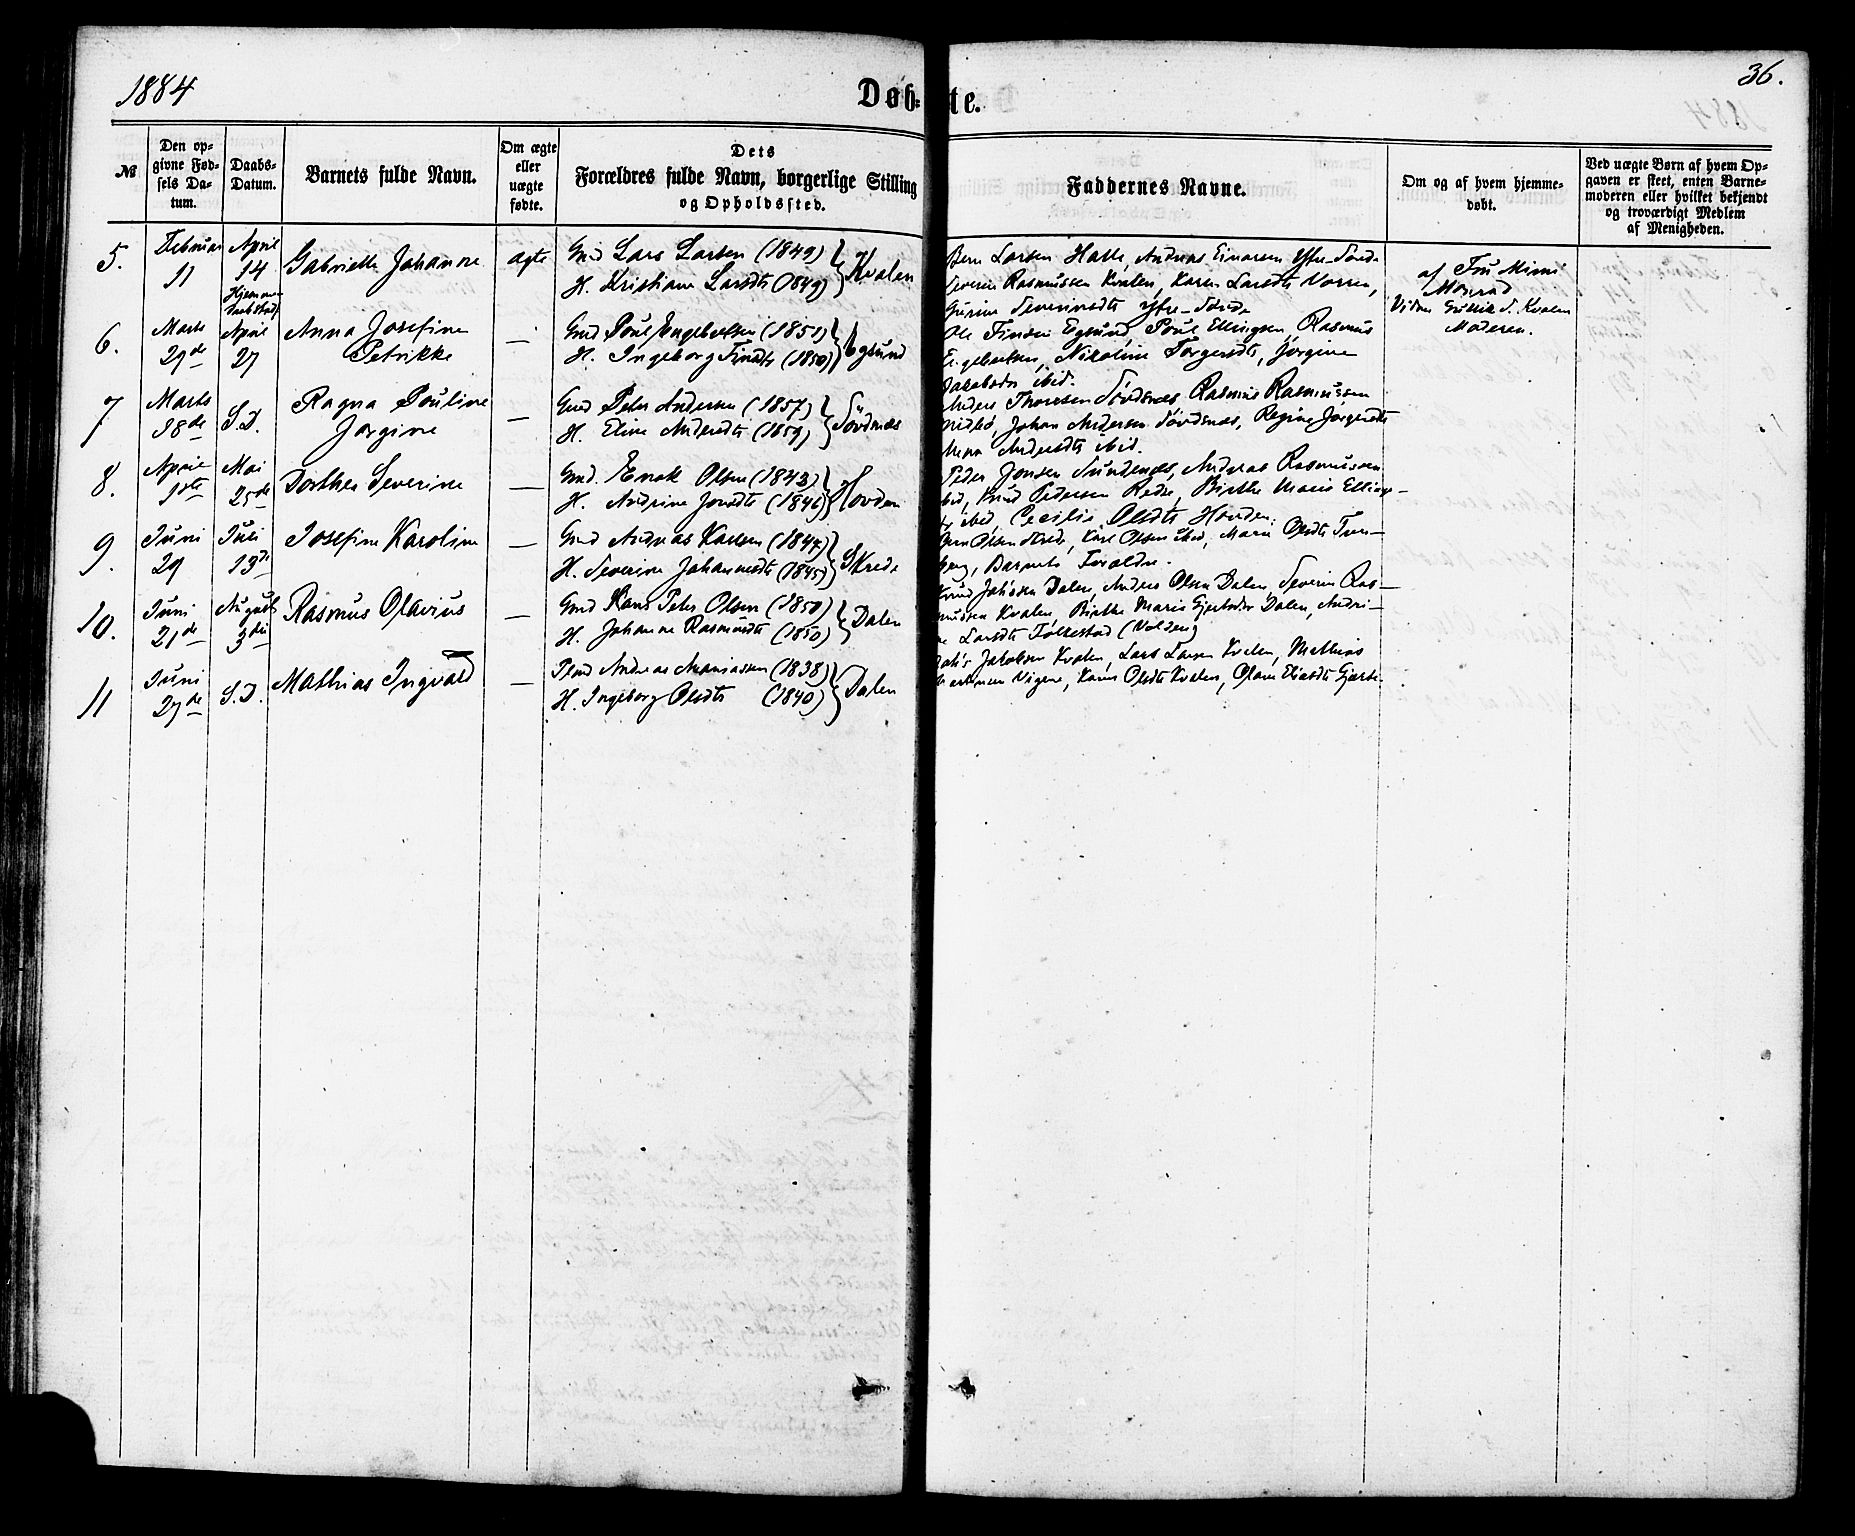 1884
Døb-te.
36.
№
Den opgivne Fødsels Datum.
Daabs-Datum.
Barnets fulde Navn.
Om ægte eller uægte fødte.
Dets Forældres fulde Navn, borgerlige Stilling og Opholdssted.
Faddernes Navne.
Om og af hvem hjemmedøbt.
Ved uægte Børn af hvem Opgaven er skeet, enten Barnemoderen eller hvilket bekjendt og troværdigt Medlem af Menigheden.
5.
Februar 11
April 14
Gabrielle Johanne
ægte
Gmd Lars Larsen (1849)
H. Kristiane Larsdtr (1849)
Kvalen
Larsen Hatle, Andreas Einarsen Ytre-Sørde
Severin Rasmussen Kvalen, Karen Larsdtr Vorren,
Severinsdtr Ytre-Sørde
af Fru Mimi
Monrad
Vidner Gullik S. Kvalen
Moderen.
6.
Marts 29de
April 27
Anna Josefine
Petrikke
—
Gmd Poul Ingebrigtsen (1851)
H. Ingeborg Finsdtr (1850)
Egsund
Ole Finsen Egsund, Poul Ellingsen, Rasmus
Nikoline Torgersdtr, Jørgine
Jakobsdtr ibid.
7
Marts 18de
S.D.
Ragna Pouline
Jørgine
—
Gmd Peter Andersen (1857)
H. Eline Andersdtr (1859)
Sørdsnæs
Anders Thoresen Sørdsnæs, Rasmus Rasmussen
Johan Andersen Sørdsnæs, Regine Jørgensdtr
Andersdtr ibid.
8.
April 1ste
Mai 25de
Dorthea Severine
—
Gmd. Enok Olsen (1843)
H. Andrine Jonsdtr (1846)
Hovden
Peder Jonsen Sundenæs, Andreas Rasmussen
ibid, Knud Pedersen Berthe Marie Ellings-
dtr ibid, Cecilie Olsdtr Hovden.
9.
Juni 29
Juli 13de
Josefine Karoline
—
Gmd Andreas Karlsen (1847)
H. Severine Johannesdtr (1845)
Skrede
Olsen Skrede, Karl Olsen ibid, Marie Olsdtr
Barnets Forældre.
10.
Juni 21de
August 3die
Rasmus Olavius
—
Gmd Hans Peter Olsen (1850)
H. Johanne Rasmusdtr (1850)
Dalen
Knud Dalen, Anders Olsen Dalen, Severin Ras-
mussen Kvalen, Berthe Marie Gjertsdtr Dalen, Andri-
ne Larsdtr Folkestad (Volden)
11
Juni 27de
S.D.
Mathias Ingvald
—
Andreas Ananiassen (1838)
H. Ingeborg Olsdtr (1840)
Dalen
Jakobsen Kvalen, Lars Larsen Kvalen, Mathias
Martinsen Vigene, Karen Olsdtr Kvalen,